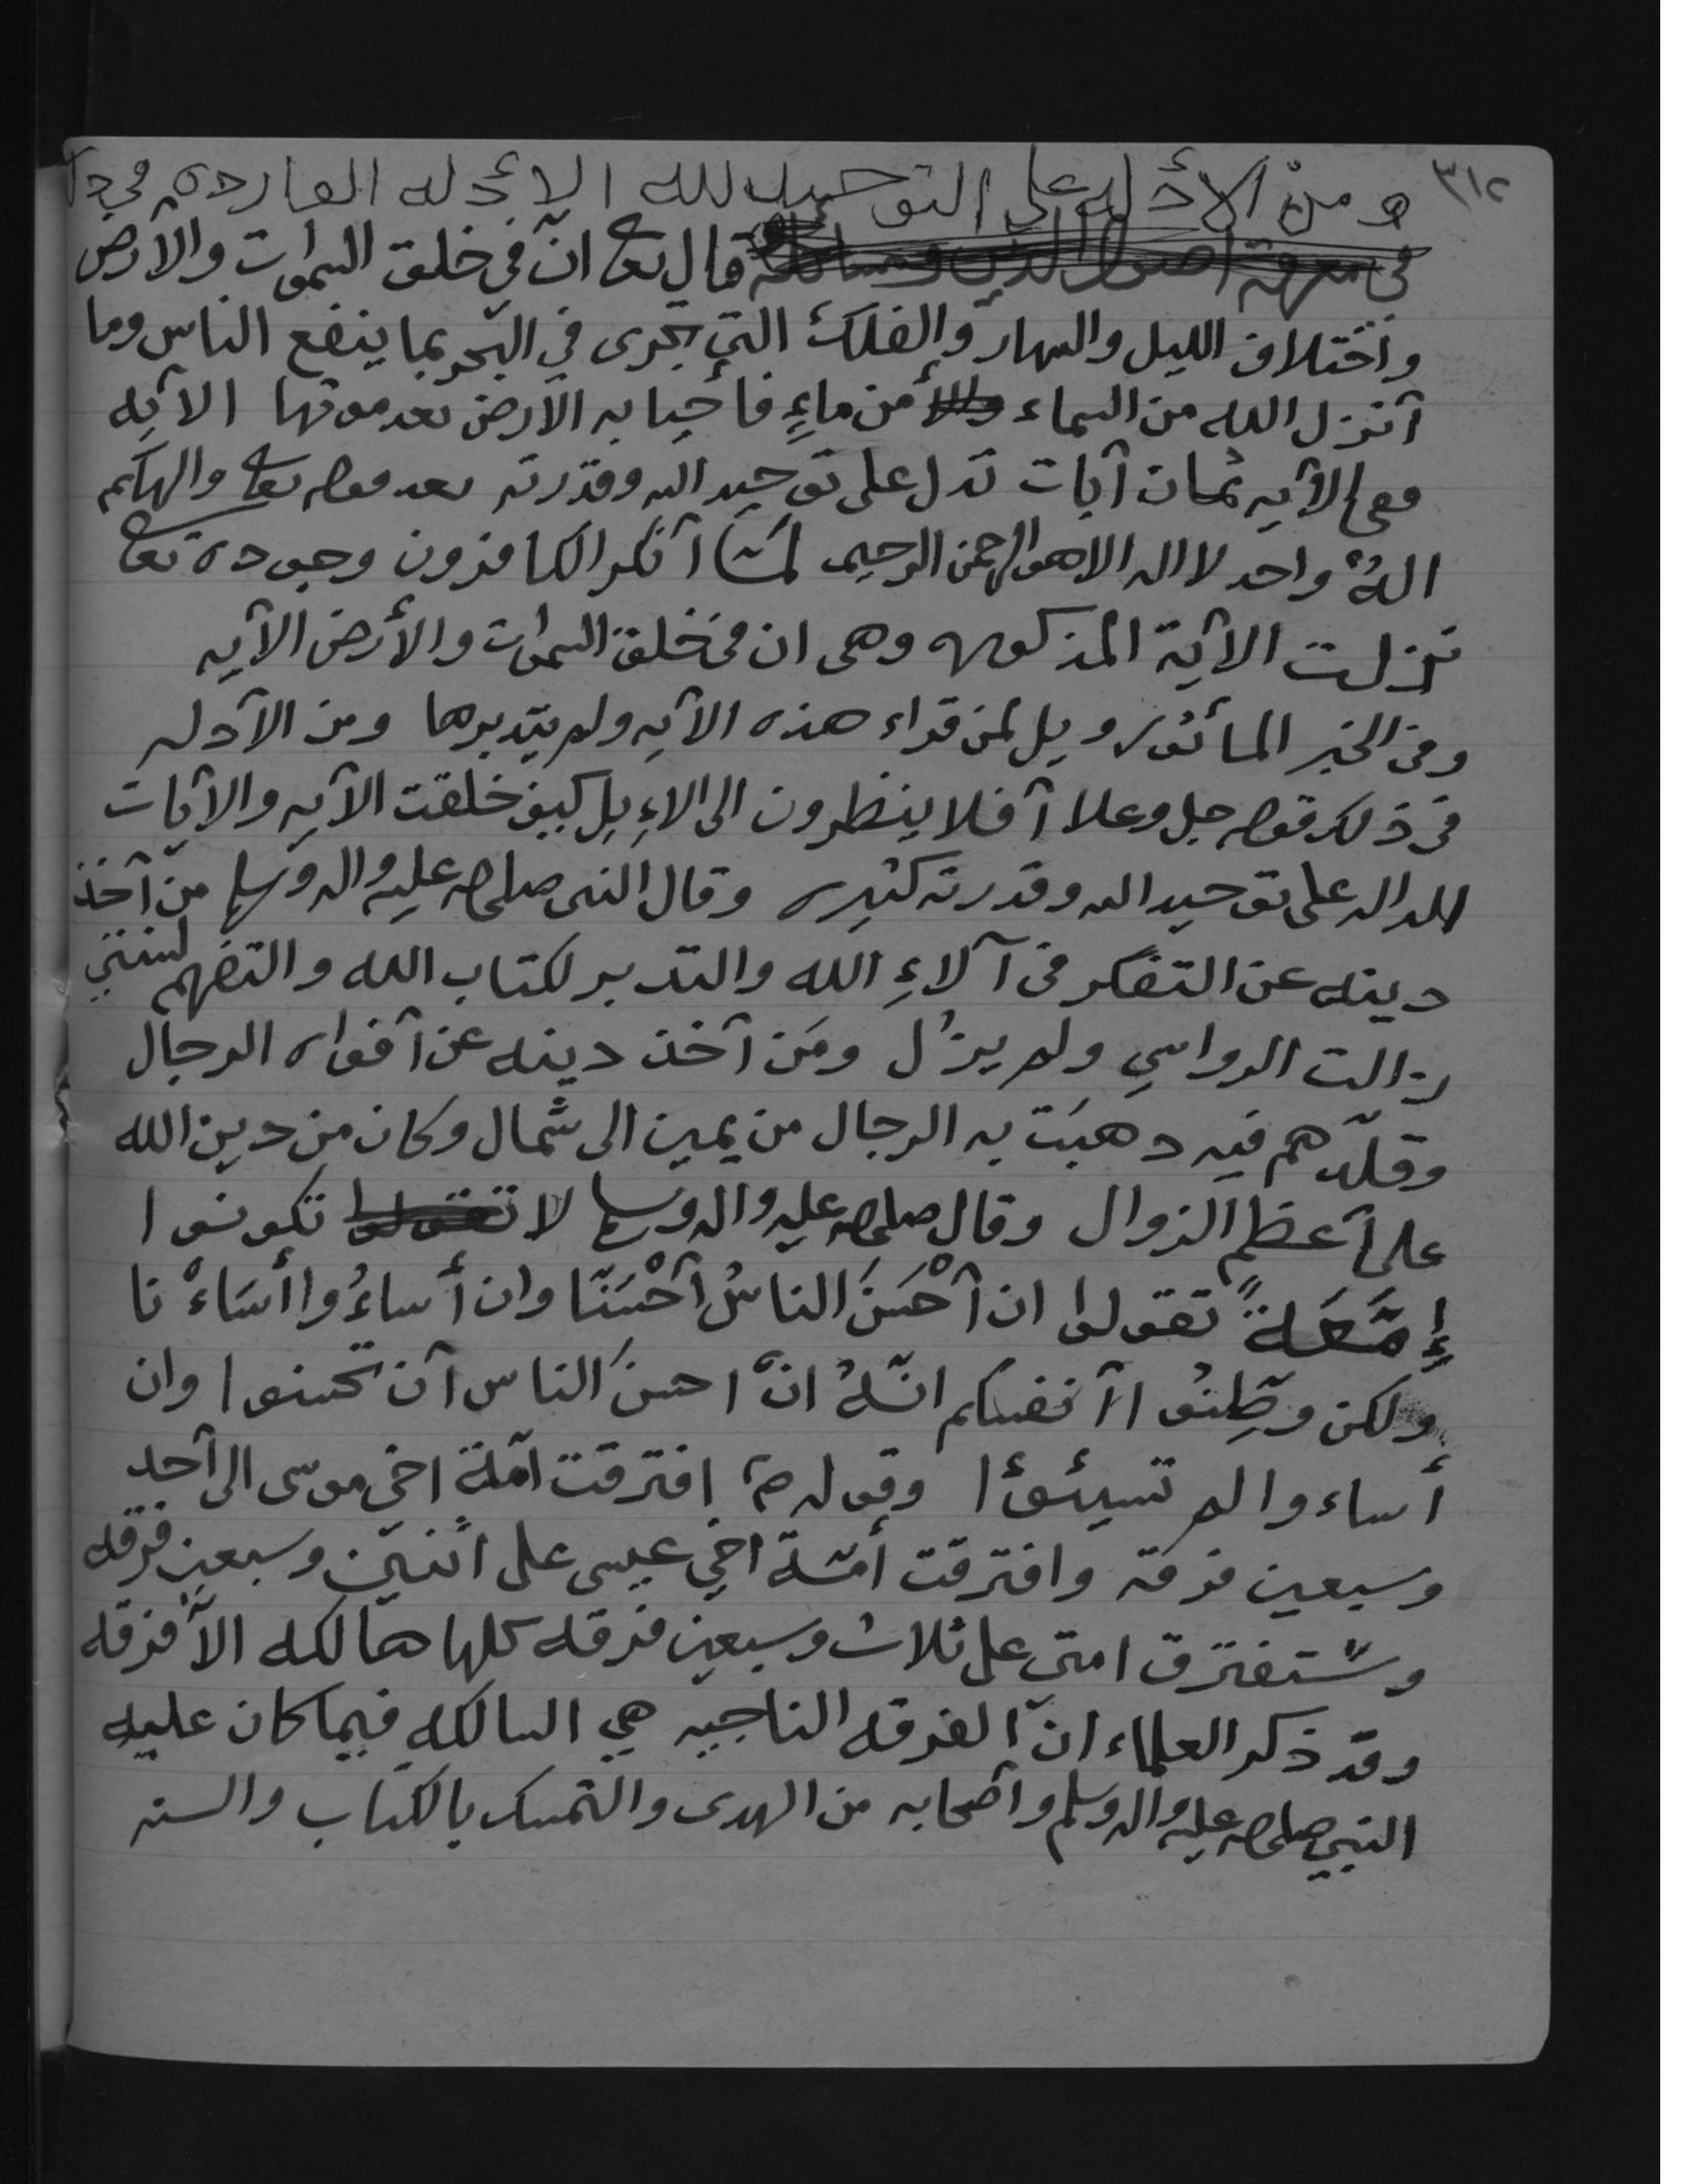 ٣١٢
ومن الأدله على التوحيد لله الأدله الوارده في
في معرفة اصول الدين ومسائله قال تعا ان في خلق السموات والأرض
واختلاف الليل والنهار والفلك التي تجرى في البحر بما ينفع الناس وما
أنزل الله من السماء من ماءٍ فأحيا به الأرض بعد موتها الآيه
ففي الآيه ثمان آيات تدل على توحيد الله وقدرته بعد قوله تعا والهكم
الهٌ واحد لا اله الا هو الرحمن الرحيم لمّا أنكر الكافرون وجوده تعا
نزلت الآية المذكوره وهى ان في خلق السموات والأرض الآيه
وفي الخبر المأثور ويل لمن قراء هذه الآيه ولم يتدبرها ومن الأدله
في ذلك قوله جل وعلا أفلا ينظرون الى الإبِل كيف خلقت الآيه والآيات
الداله على توحيد الله وقدرته كثيره وقال النبي صلى الله عليه واله وسلم من أخذ
دينه عن التفكر في آلاءِ الله والتدبر لكتاب الله والتفهم لسنتي
زالت الرواسي ولم يزُل ومَن أخذ دينه عن أفواه الرجال
وقلّدهم فيه ذهبَت به الرجال من يمين الى شمال وكان من دين الله
على أعظم الزوال وقال صلى الله عليه واله وسلم لا تقولوا تكونوا
إِمَّعَةً تقولوا ان أحْسَنَ الناسُ أحْسَنّا وان أساءُوا أسَاءْنا
ولكن وطِّنُوا أنفسكم انّهُ انْ احسنَ الناس أن تحسنوا وان
أساءوا لم تسيئوا وقوله ص افترقت أمّة اخي موسى الى أحد
وسبعين فرقة وافترقت أمّة اخي عيسى على اثنتين وسبعين فرقه
وسَتفترق امتي على ثلاث وسبعين فرقه كلها هالكه الاّ فرقه
وقد ذكر العلماء انّ الفرقه الناجيه هي السالكه فيما كان عليه
النبي صلى الله عليه واله وسلم وأصحابه من الهدى والتمسك بالكتاب والسنه